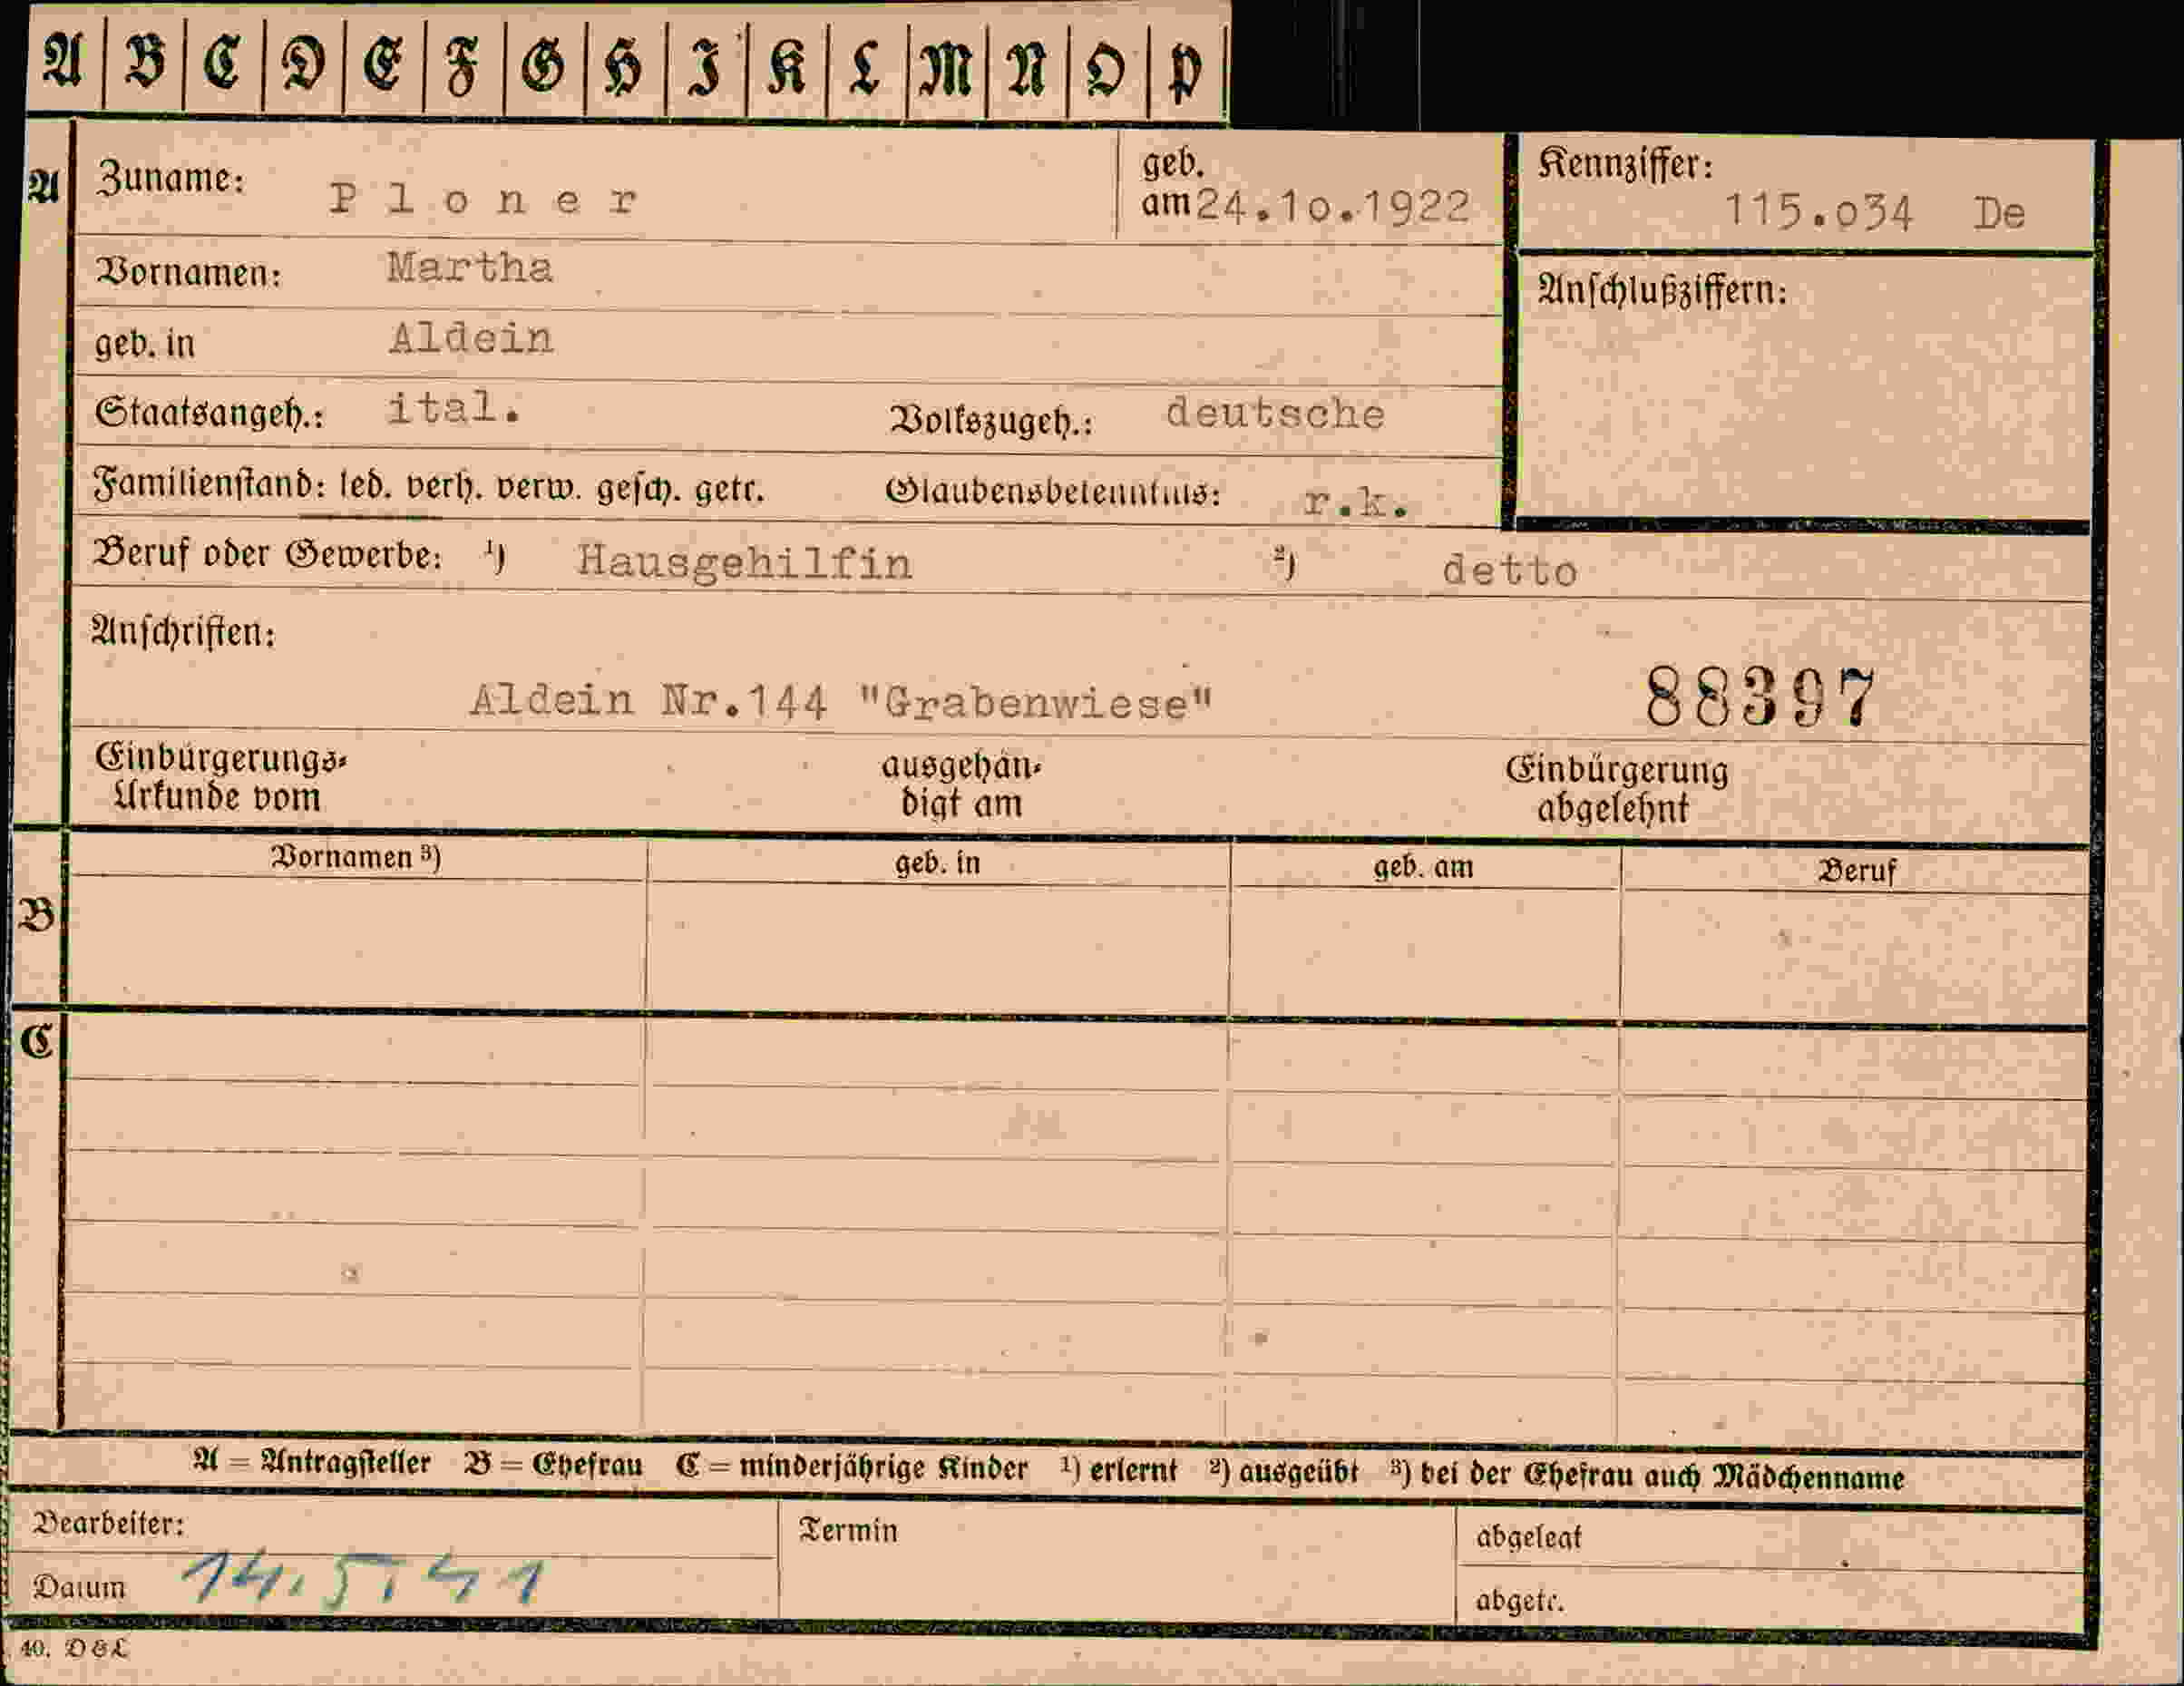 A B C D E F G H I K L M N O P
A Zuname: Ploner geb. am 24.10.1922 Kennziffer: 115.034 De
Vornamen: Martha Anschlußziffern:
geb. in Aldein
Staatsangeh.: ital. Volkszugeh.: deutsche
Familienstand: led. verh. verw. gesch. getr. Glaubensbekenntnis: r.k.
Beruf oder Gewerbe: ¹) Hausgehilfin ²) detto
Anschriften:
Aldein Nr.144 "Grabenwiese" 88397
Einbürgerungs- ausgehän- Einbürgerung
Urkunde vom digt am abgelehnt
Vornamen ³) geb. in geb. am Beruf
B
C
A = Antragsteller B = Ehefrau C = minderjährige Kinder ¹) erlernt ²) ausgeübt ³) bei der Ehefrau auch Mädchenname
Bearbeiter: Termin abgelegt
Datum 14.5.41 abgetr.
40. D&L